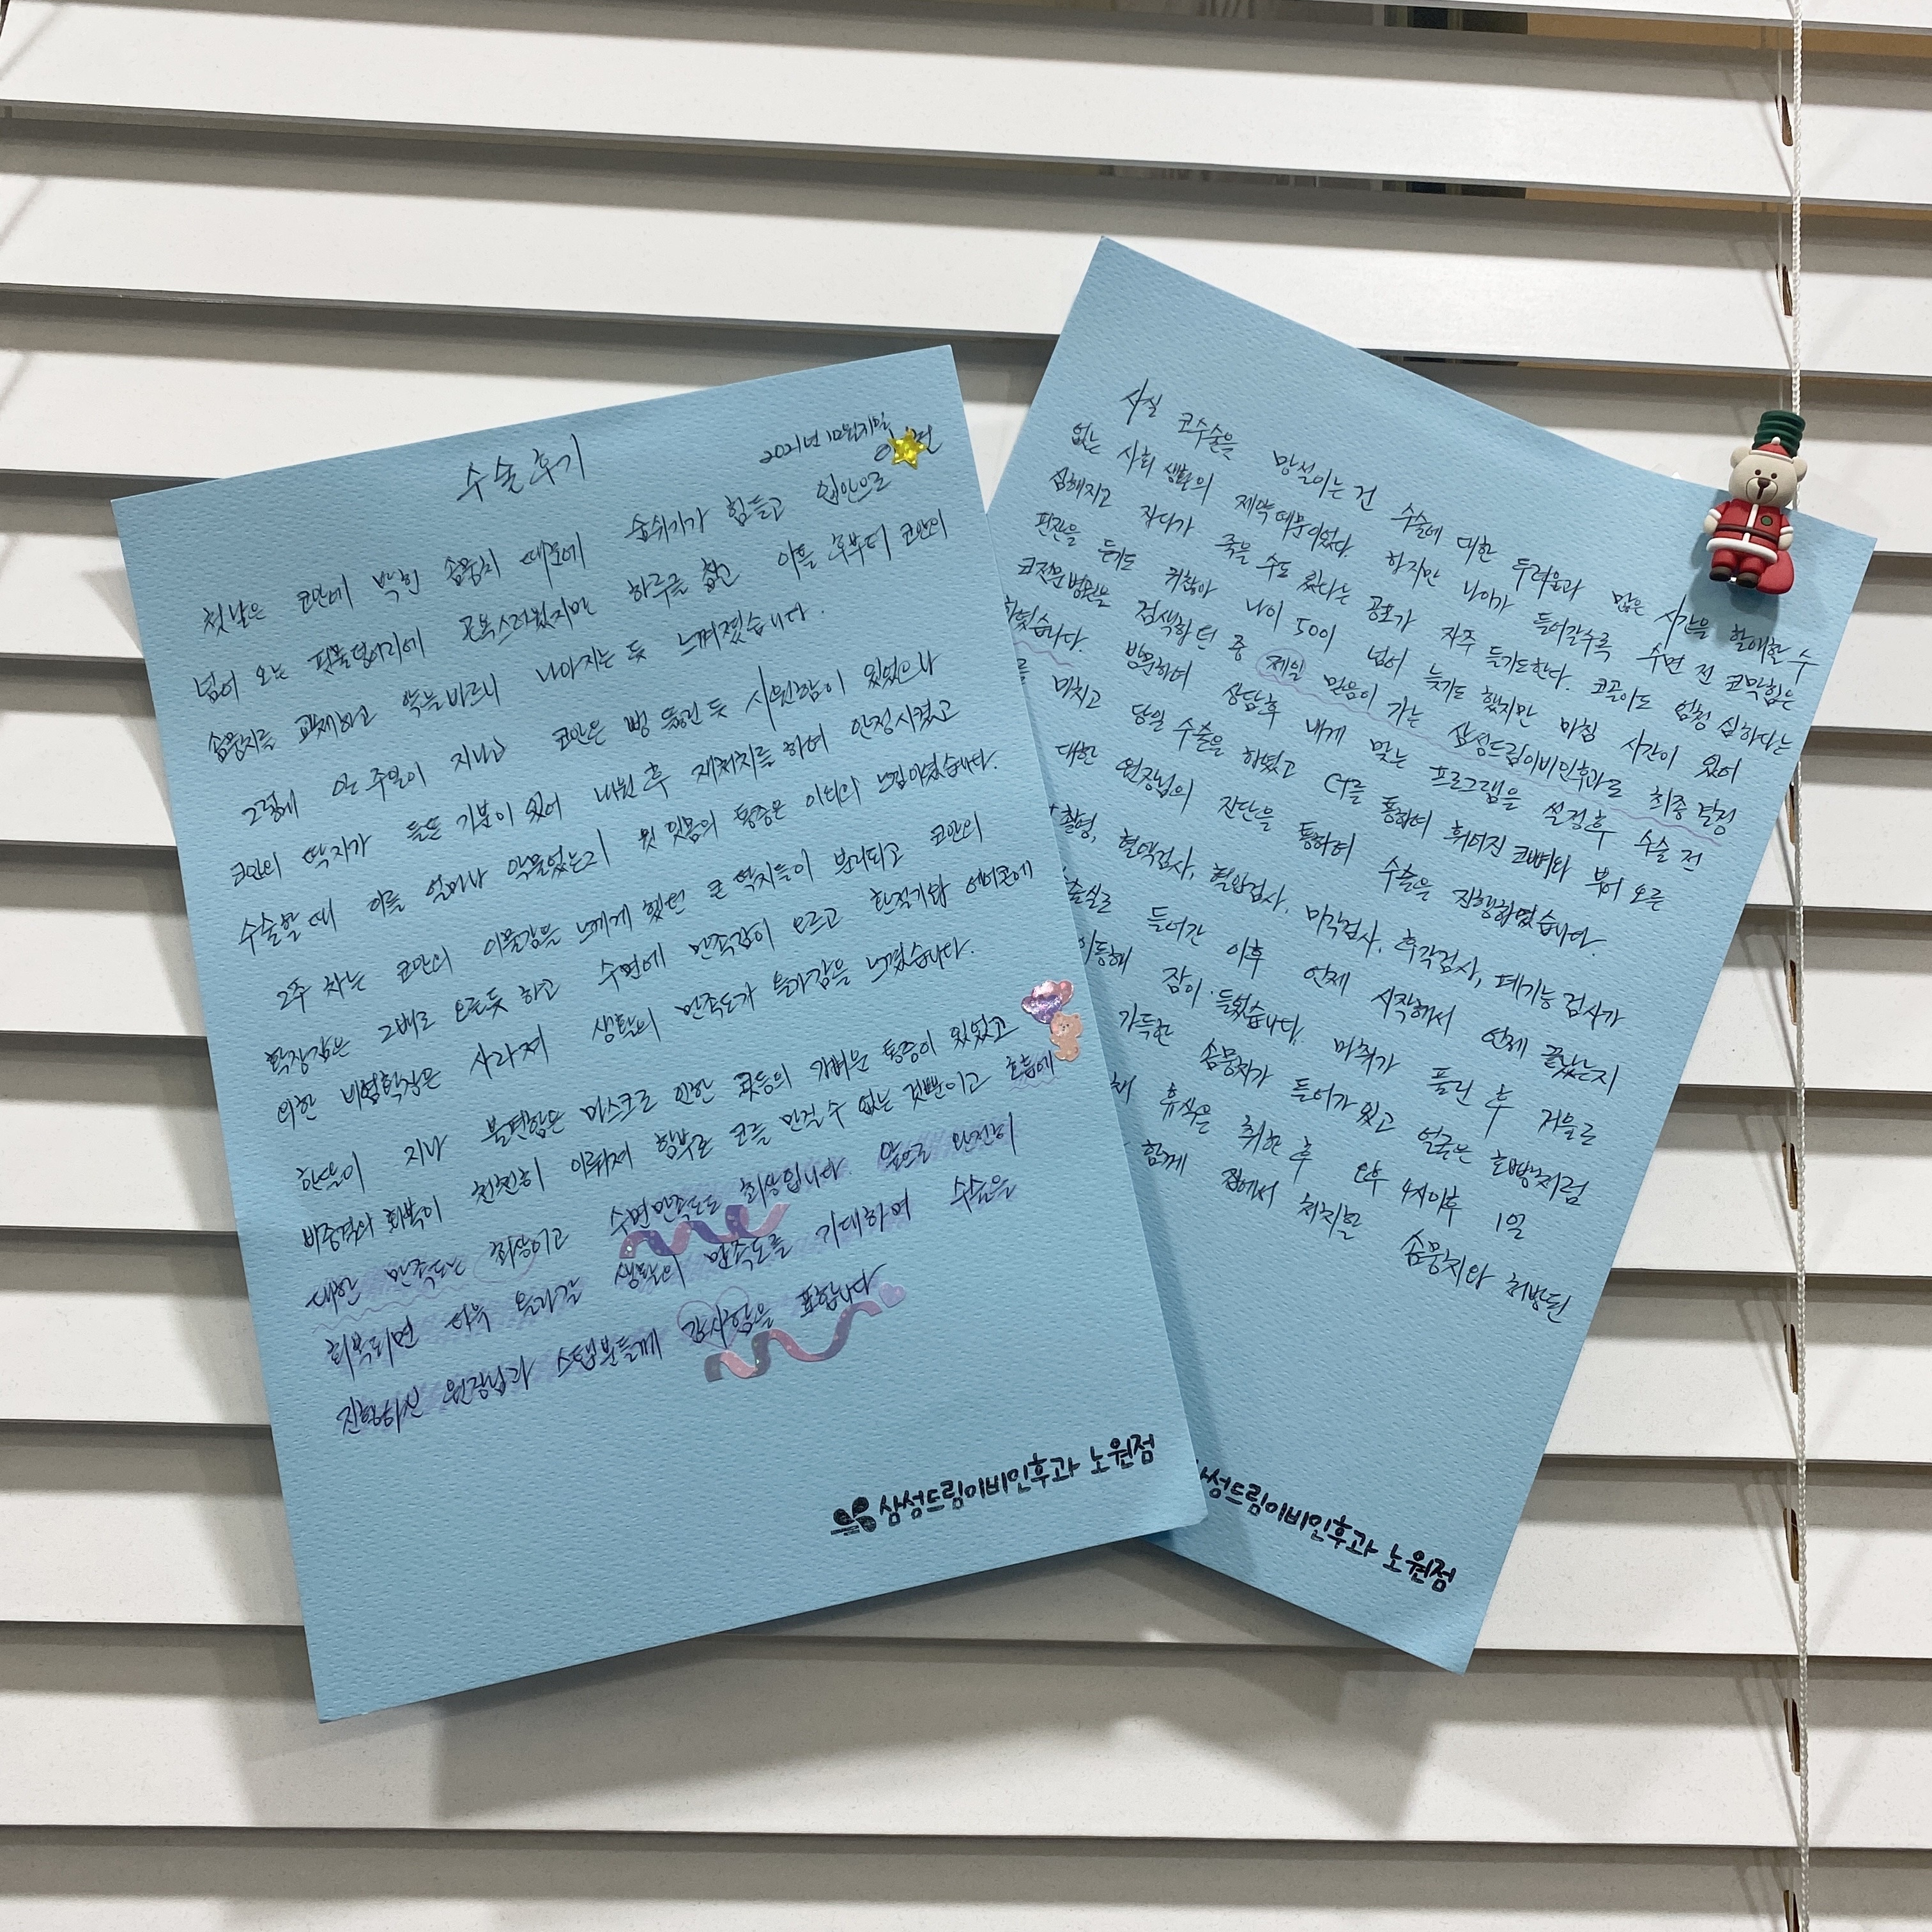 수술후기
2021년 12월 21일
첫날은 코안에 박힌 솜뭉치 때문에 숨쉬기가 힘들고 입안으로
넘어 오는 핏물덩어리에 곤욕스러웠지만 하루를 참고 이틀 후부터 코안의
솜뭉치를 교체하고 약을바르니 나아지는 듯 느껴졌습니다.
그렇게 일주일이 지나고 코안은 뻥 뚫린 듯 시원함이 있었으나
코안의 딱지가 들뜬 기분이 있어 내원 후 재처치를 하여 안정시켰고
수술할 때 이를 얼마나 악물었는지 윗 잇몸의 통증은 이외의 느낌이였습니다.
2주 차는 코안의 이물감을 느끼게 했던 큰 딱지들이 분리되고 코안의
확장감은 2배로 오른듯 하고 수면에 만족감이 오르고 환절기와 에어콘에
의한 비염확장은 사라져 생활의 만족도가 올라감을 느꼈습니다.
한달이 지나 불편함은 마스크로 인한 콧등의 가벼운 통증이 있었고
비중격의 회복이 천천히 이뤄져 함부로 코를 만질 수 없는 것뿐이고 호흡에
대한 만족도는 최상이고 수면만족도도 최상입니다. 앞으로 완전히
회복되면 더욱 올라갈 생활의 만족도를 기대하며 수술을
진행하신 원장님과 스탭분들께 감사함을 표합니다
삼성드림이비인후과 노원점
사실 코수술을 망설이는 건 수술에 대한 두려움과 많은 시간을 할애할 수
없는 사회 생활의 제약때문이었다. 하지만 나이가 들어갈수록 수면 전 코막힘은
심해지고 자다가 죽을 수도 있다는 공포가 자주 들기도한다. 코골이도 엄청 심하다는
핀잔을 듣기도 귀찮아 나이 50이 넘어 늦기도 했지만 마침 시간이 있어
코전문병원을 검색하던 중 제일 믿음이 가는 삼성드림이비인후과로 최종 결정
하였습니다. 방문하여 상담후 내게 맞는 프로그램을 설정후 수술 전
를 마치고 당일 수술을 하였고 CT를 통하여 휘어진 코뼈와 부어 오른
대한 원장님의 진단을 통하여 수술을 진행하였습니다.
촬영, 혈액검사, 혈압검사, 미각검사, 후각검사, 폐기능 검사가
술실로 들어간 이후 언제 시작해서 언제 끝났는지
이동해 잠이 들었습니다. 마취가 풀린 후 거울로
가득한 솜뭉치가 들어가 있고 얼굴은 호빵처럼
채 휴식을 취한 후 오후 4시이후 1일
함께 집에서 처치할 솜뭉치와 처방된
삼성드림이비인후과 노원점